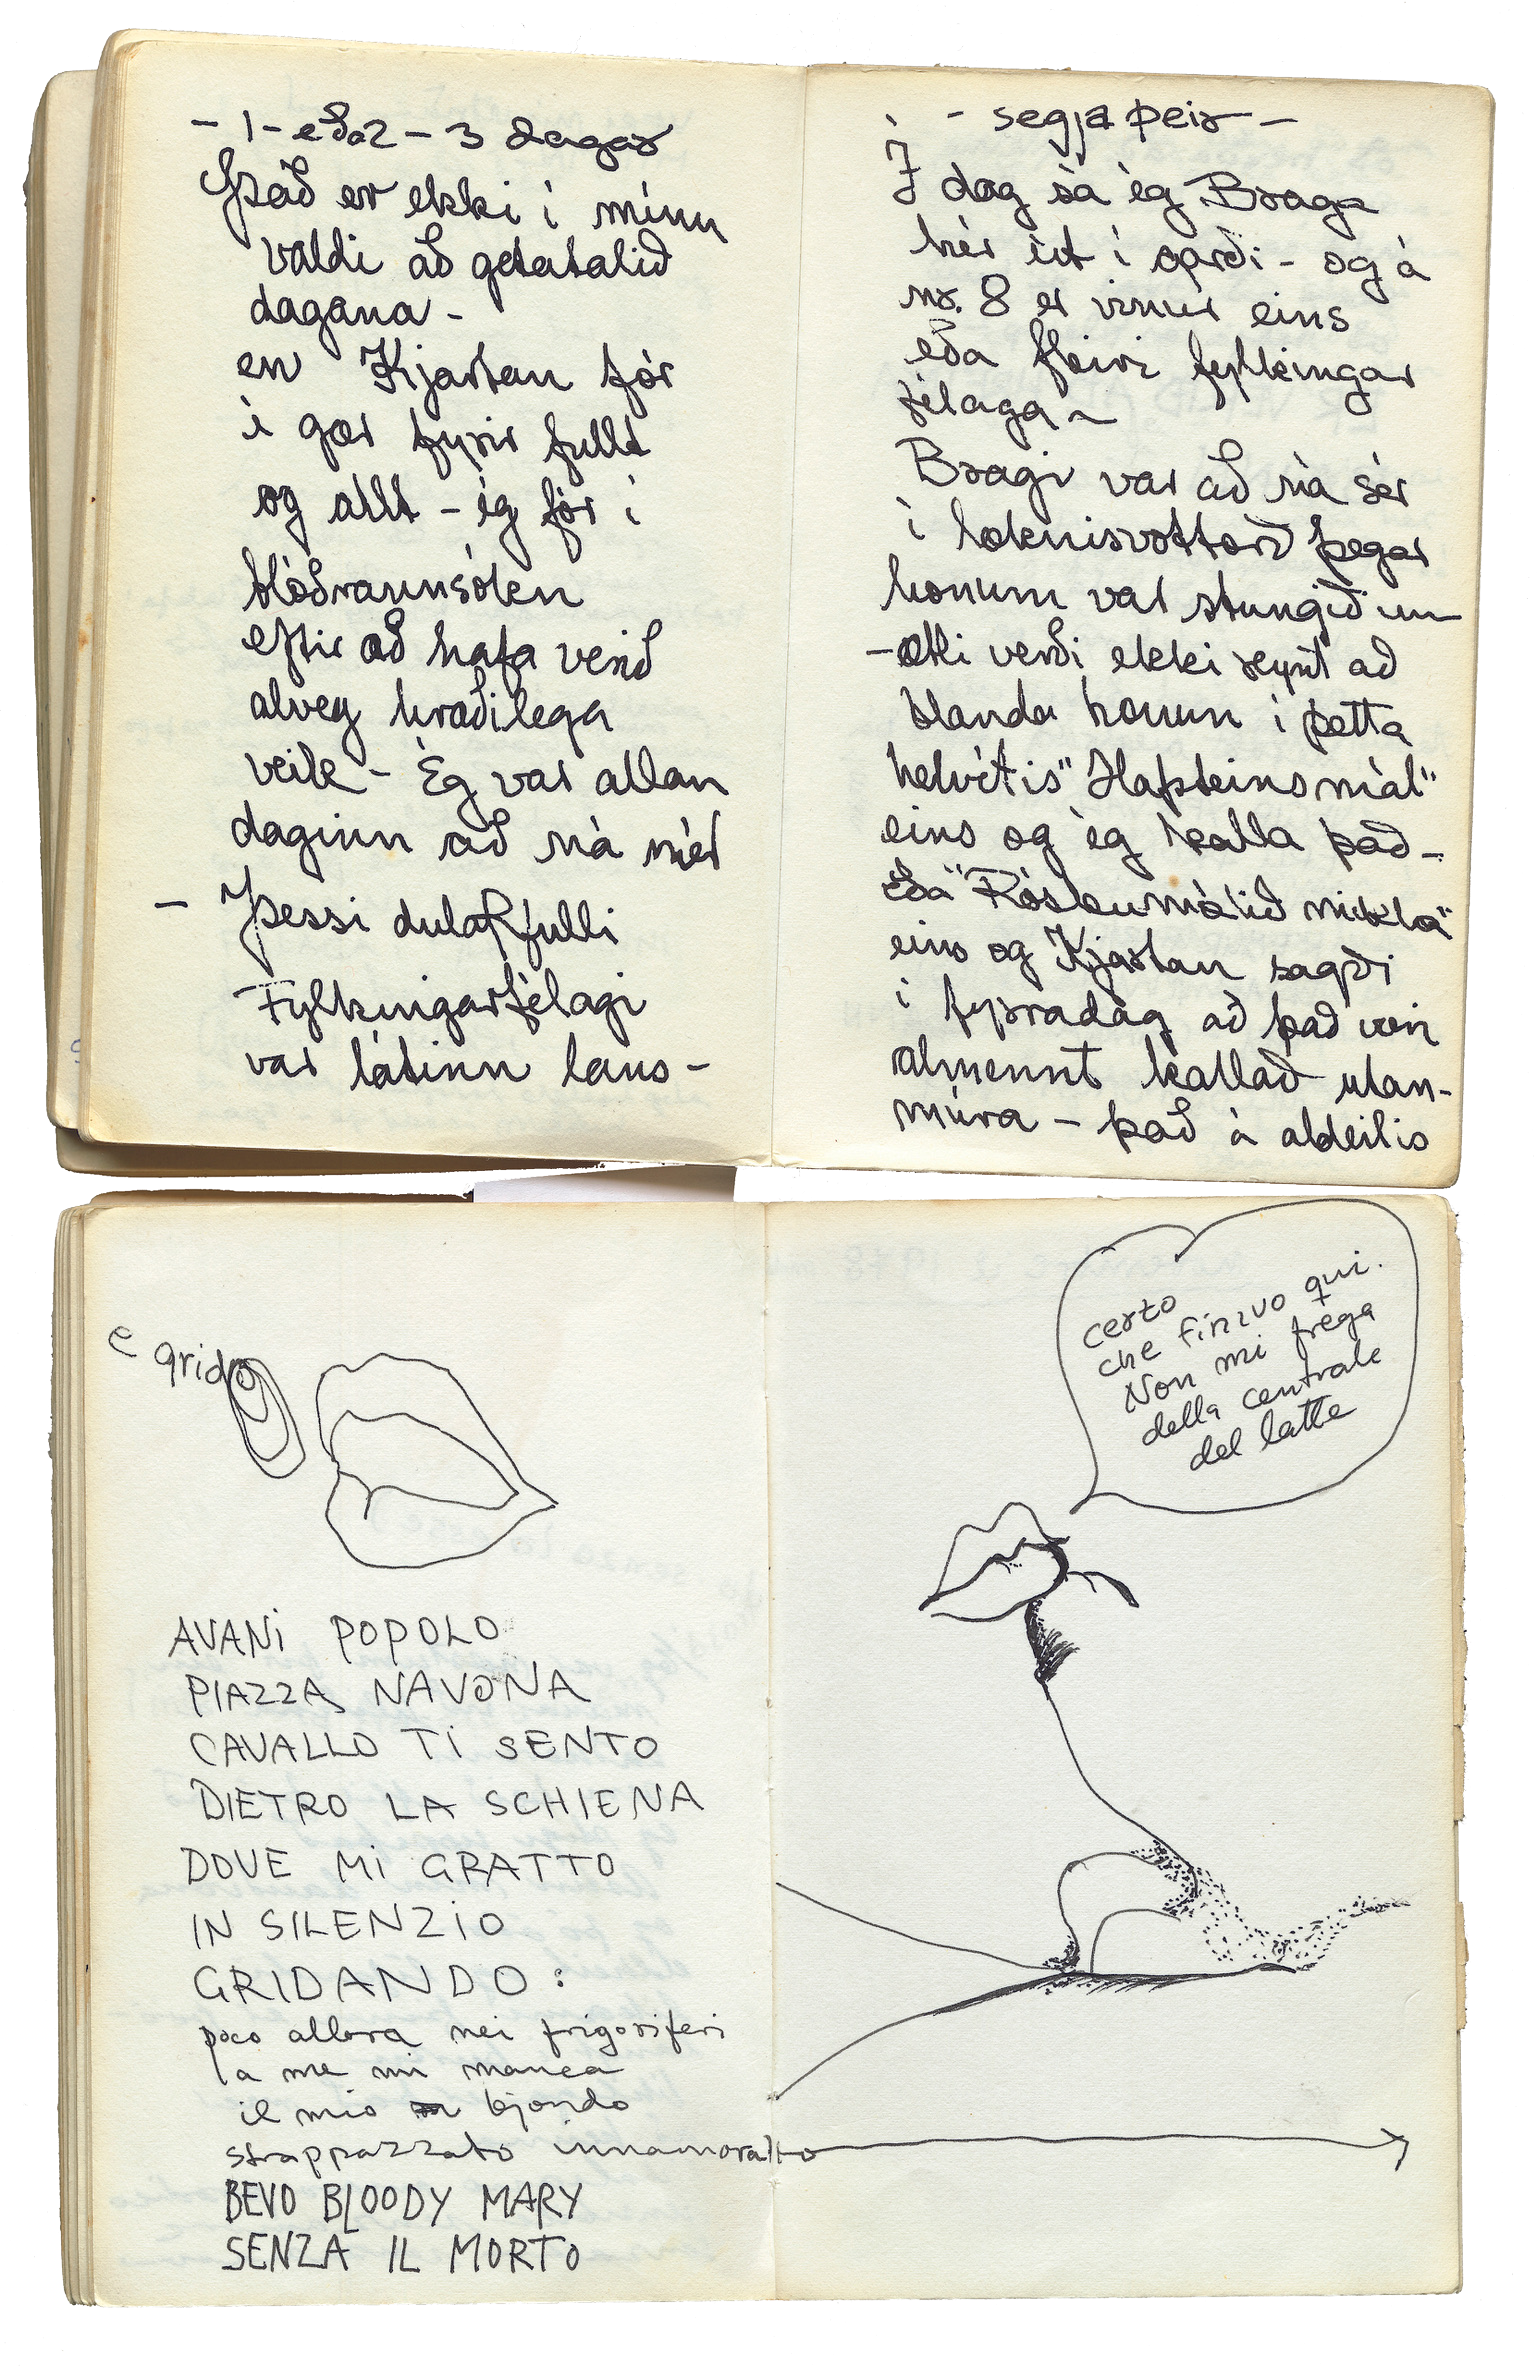 - 1 - eða 2 - 3 dagar
Það er ekki í mínu
valdi að geta talið
dagana -
en Kjartan fór
í gær fyrir fullt
og allt - ég fór í
blóðrannsókn
eftir að hafa verið
alveg hræðilega
veik - Ég var allan
daginn að ná mér
- Þessi dularfulli
Fylkingarfélagi
var látinn laus -
- segja þeir -
Í dag sá ég Braga
hér út í garði - og á
nr. 8 er vinur eins
eða fleiri fylkingar
félaga -
Bragi var að ná sér
í læknisvottorð þegar
honum var stungið inn
- ætli verði ekki reynt að
blanda honum í þetta
helvítis "Hafsteinsmál"
eins og ég kalla það -
eða "Róskumálið mikla"
eins og Kjartan sagði
í fyrradag að það væri
almennt kallað utan-
múra - það á aldeilis
e grido
AVANi POPOLO
PIAZZA NAVONA
CAVALLO Ti SENTO
DIETRO LA SCHIENA
DOVE Mi GRATTO
IN SILENZIO
GRIDANDO:
poco allora nei frigoriferi
a me mi manca
il mio bjondo
strappazzato innamorato
BEVO BLOODY MARY
SENZA IL MORTO
certo
che finivo qui.
Non mi frega
della centrale
del latte